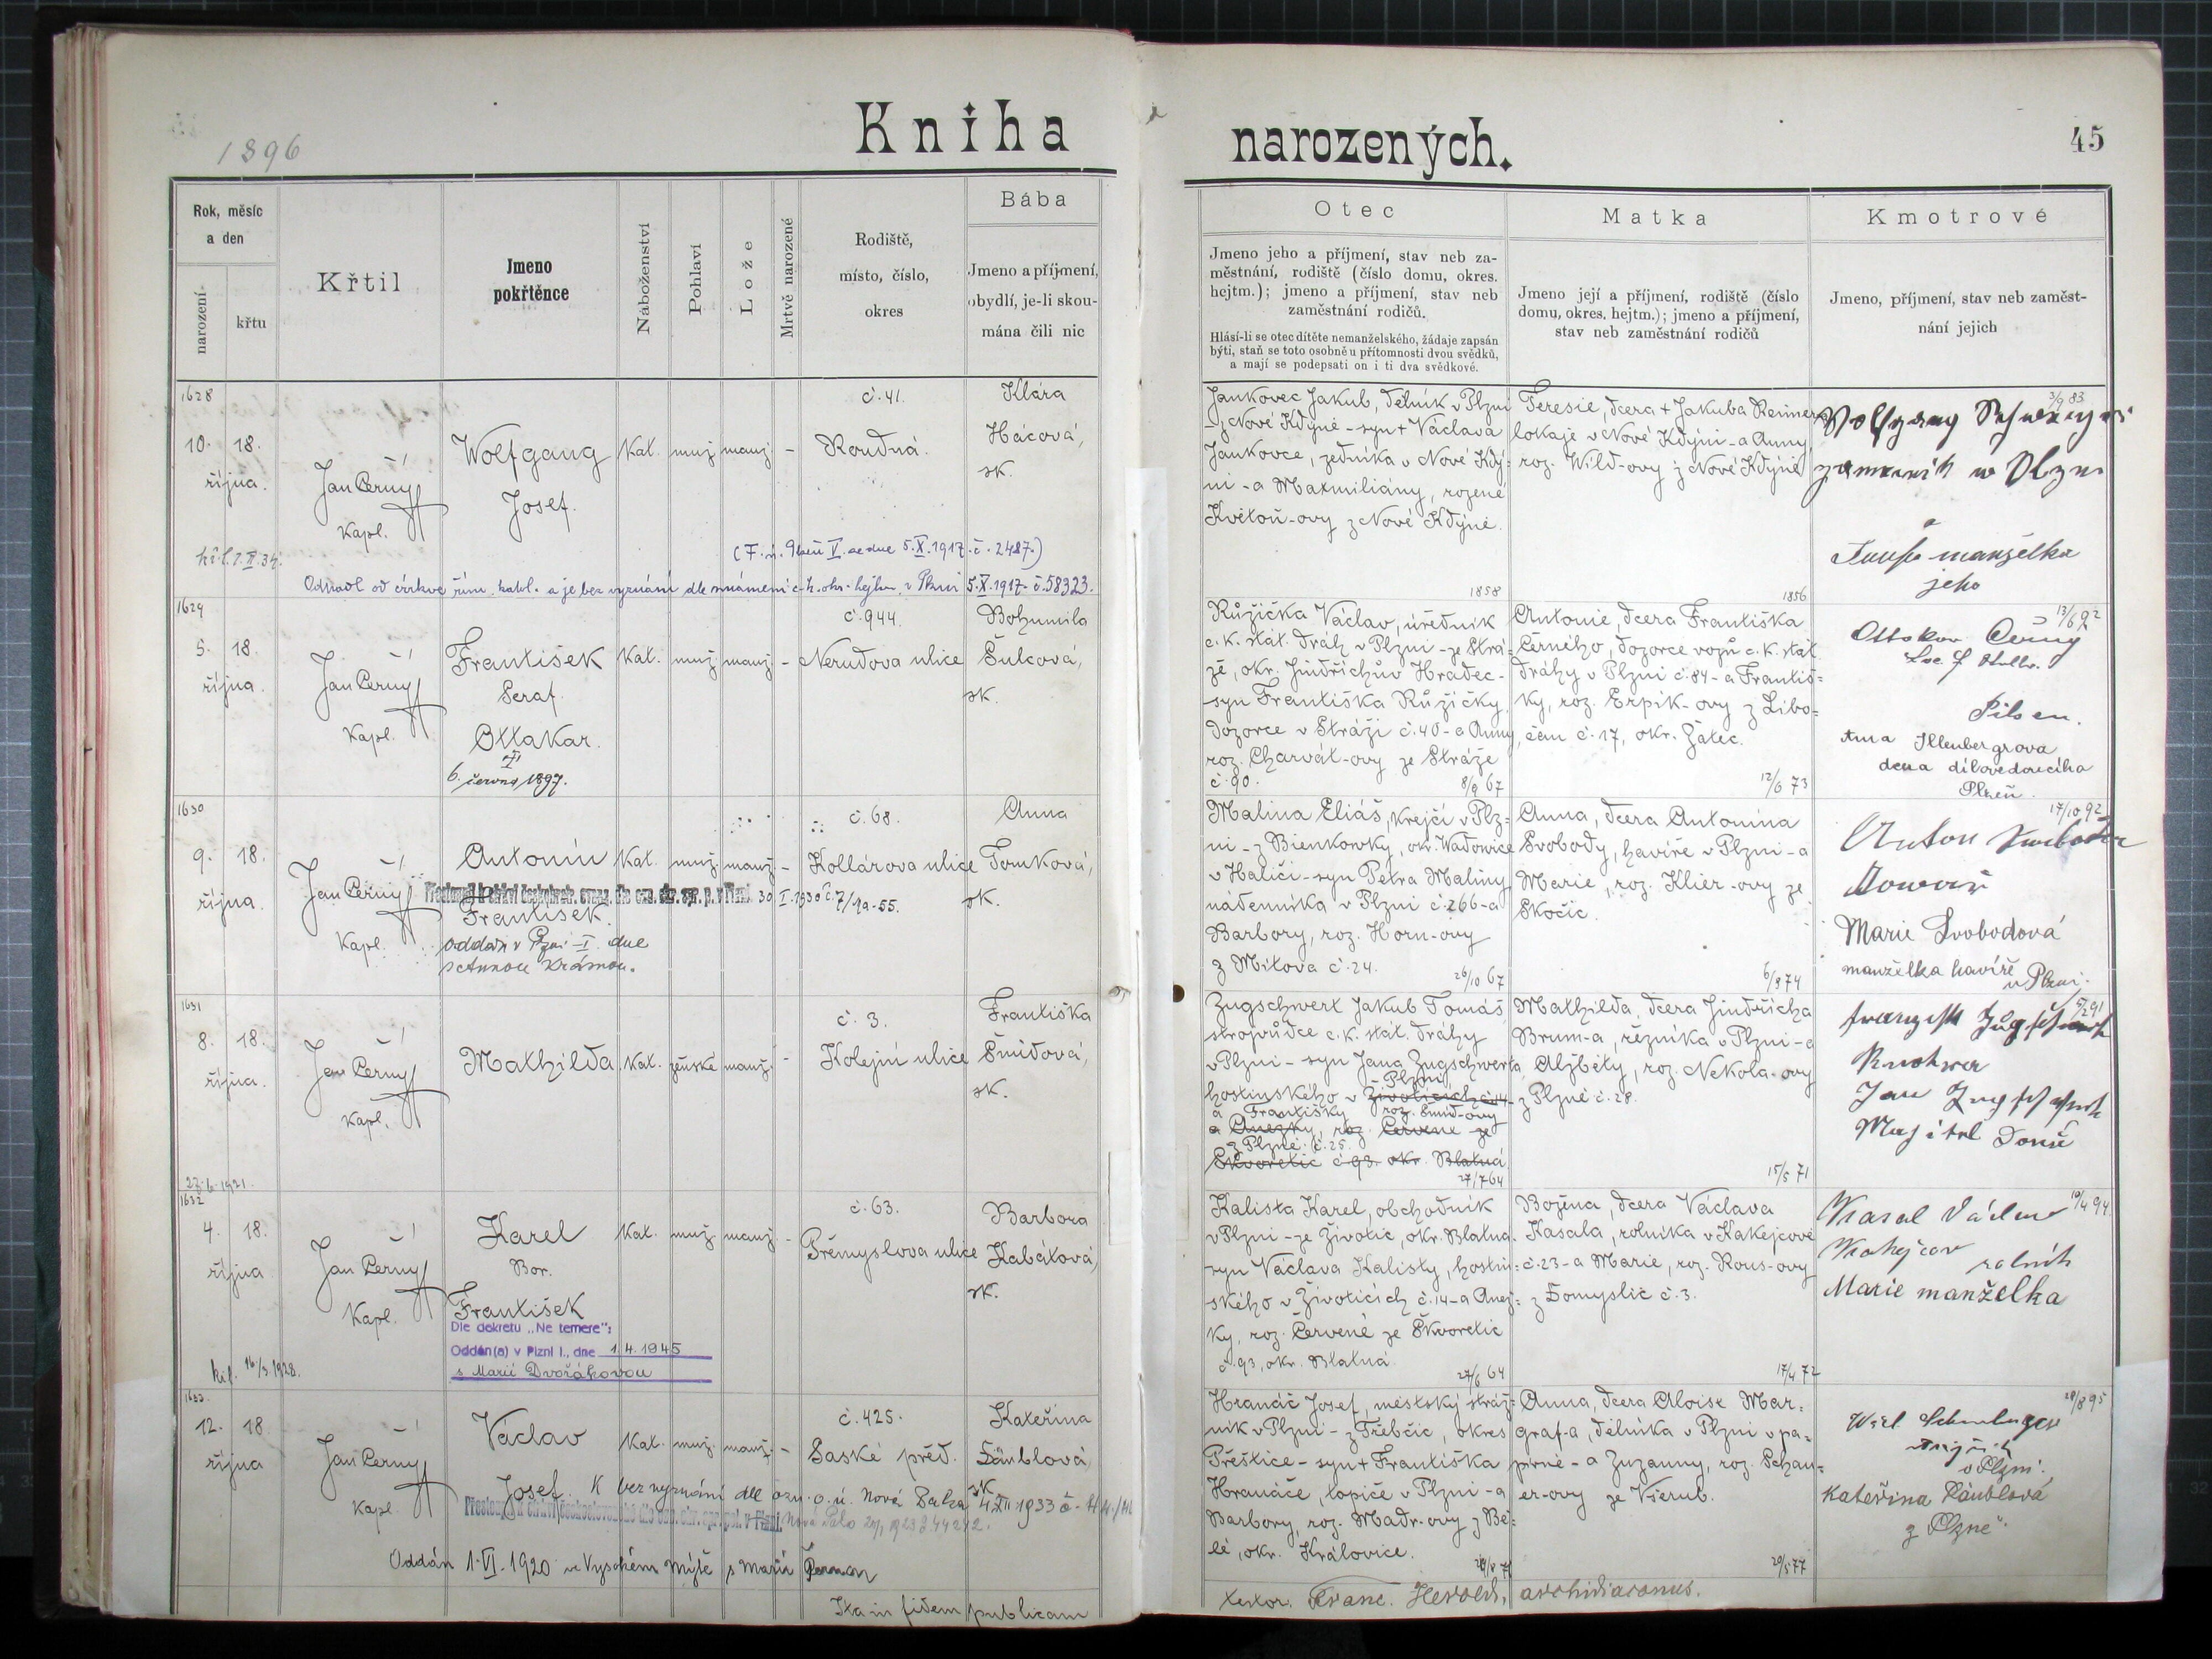 1896
Kniha
narozených.
45
Rok, měsíc
a den
narození
křtu
Křtil
Jmeno
pokřtěnce
Náboženství
Pohlaví
Lože
Mrtvě narozené
Rodiště,
místo, číslo,
okres
Bába
Jmeno a příjmení,
obydlí, je-li skou-
mána čili nic
Otec
Jmeno jeho a příjmení, stav neb za-
městnání, rodiště (číslo domu, okres.
hejtm.); jmeno a příjmení, stav neb
zaměstnání rodičů.
Hlásí-li se otec dítěte nemanželského, žádaje zapsán
býti, staň se toto osobně u přítomnosti dvou svědků,
a mají se podepsati on i ti dva svědkové.
Matka
Jmeno její a příjmení, rodiště (číslo
domu, okres. hejtm.); jmeno a příjmení,
stav neb zaměstnání rodičů
Kmotrové
Jmeno, příjmení, stav neb zaměst-
nání jejich
1628
10. 18.
října.
Jan Černý
Kapl.
Wolfgang
Josef.
Kat. muž. manž. -
č. 41.
Roudná.
Klára
Hácová,
sk.
Jankovec Jakub, dělník v Plzni
- z Nové Kdyně - syn + Václava
Jankovce, zedníka v Nové Kdy-
ni - a Maxmiliány, rozené
Květoň-ovy z Nové Kdyně.
1858
Teresie, dcera + Jakuba Reimera
lokaje v Nové Kdyni - a Anny
roz. Wild-ovy z Nové Kdyně
1856
3/9 83
Wolfgang
manželka
jeho
(F. ú. Plzeň V. ze dne 5.X.1917 č. 2487.)
Odpadl od církve řím. katol. a je bez vyznání dle oznámení c. k. okr. hejtm. v Plzni 5.X.1917 č. 58323.
1629
5. 18.
října.
Jan Černý
Kapl.
František
Seraf.
Ottakar.
6. června 1897.
Kat. muž. manž. -
č. 944.
Nerudova ulice
Bohumila
Šulcová,
sk.
Růžička Václav, úředník
c. k. stát. dráh v Plzni - ze Strá-
že, okr. Jindřichův Hradec -
syn Františka Růžičky,
dozorce v Stráži č. 40 - a Anny,
roz. Charvát-ovy ze Stráže
č. 90.
8/9 67
Antonie, dcera Františka
Černého, dozorce vozů c. k. stát.
dráhy v Plzni č. 84 - a Františ-
ky, roz. Erpik-ovy z Libo-
čan č. 17, okr. Žatec.
12/6 73
13/6 92
Ottokar Černý
Pilsen.
Anna Illenbergrova
dcera dílovedoucího
Plzeň.
1630
9. 18.
října.
Jan Černý
Kapl.
Antonín
František.
oddán v Plzni - I. dne
s Annou Krásnou.
Kat. muž. manž. -
30 I. 1930 č. 7/19a-55.
č. 68.
Kollárova ulice
Anna
Tomková,
sk.
Malina Eliáš, krejčí v Plz-
ni - z Bienkowky, okr. Wadowice
v Haliči - syn Petra Maliny
nádenníka v Plzni č. 266 - a
Barbory, roz. Horn-ovy
z Mítova č. 24.
26/10 67
Anna, dcera Antonína
Svobody, havíře v Plzni - a
Marie, roz. Klier-ovy ze
Skočic.
6/9 74
17/10 92
Anton Svoboda
Marie Svobodová
manželka havíře
v Plzni.
1631
8. 18.
října.
Jan Černý
Kapl.
Mathilda.
Kat. ženské manž. -
č. 3.
Kolejní ulice
Františka
Šmídová,
sk.
Zugschwert Jakub Tomáš,
strojvůdce c. k. stát. dráhy
v Plzni - syn Jana Zugschwerta,
hostinského v Životicích č. 14 -
Plzni,
a Františky roz. Šmíd-ovy
a Anežky, roz. Červené ze
z Plzně č. 25.
Škvořetic č. 93. okr. Blatná
27/7 64
Mathilda, dcera Jindřicha
Brum-a, řezníka v Plzni - a
Alžběty, roz. Nekola-ovy
z Plzně č. 28.
15/5 71
Jan
Majitel Domu
23.6.1921.
1632
4. 18.
října
Jan Černý
Kapl.
Karel
Bor.
František
Dle dekretu „Ne temere":
Oddán(a) v Plzni I., dne 1.4.1945
s Marií Dvořákovou
16/3.1928.
Kat. muž. manž. -
č. 63.
Přemyslova ulice
Barbora
Kabátová,
sk.
Kalista Karel, obchodník
v Plzni - ze Životic, okr. Blatná.
syn Václava Kalisty, hostin-
ského v Životicích č. 14 - a Anež-
ky, roz. Červené ze Škvořetic
č. 93, okr. Blatná.
27/6 64
Božena, dcera Václava
Kasala, rolníka v Kakejcově
č. 23 - a Marie, roz. Rous-ovy
z Domyslic č. 3.
17/4 72
10/4 94
Kasal Václav
rolník
Marie manželka
1633.
12. 18
října
Jan Černý
Kapl
Václav
Josef.
Kat. muž. manž. -
č. 425.
Saské před.
Kateřina
Däublová,
sk.
K bez vyznání dle ozn. o. ú. Nová Paka 4.XII 1933
Oddán 1.VI.1920 ve Vysokém Mýtě s Marií
Hranáč Josef, městský stráž-
ník v Plzni - z Třebčic, okres
Přeštice - syn + Františka
Hranáče, topiče v Plzni - a
Barbory, roz. Maďr-ovy z Be-
lé, okr. Kralovice.
Anna, dcera Aloise Mar-
graf-a, dělníka v Plzni v pa-
pírně - a Zuzanny, roz. Schau-
er-ovy ze Všerub.
20/5 77
28/8 95
v Plzni.
Kateřina Däublová
z Plzně.
Ita in fidem publicam
testor. Franc. Herold, archidiaconus.